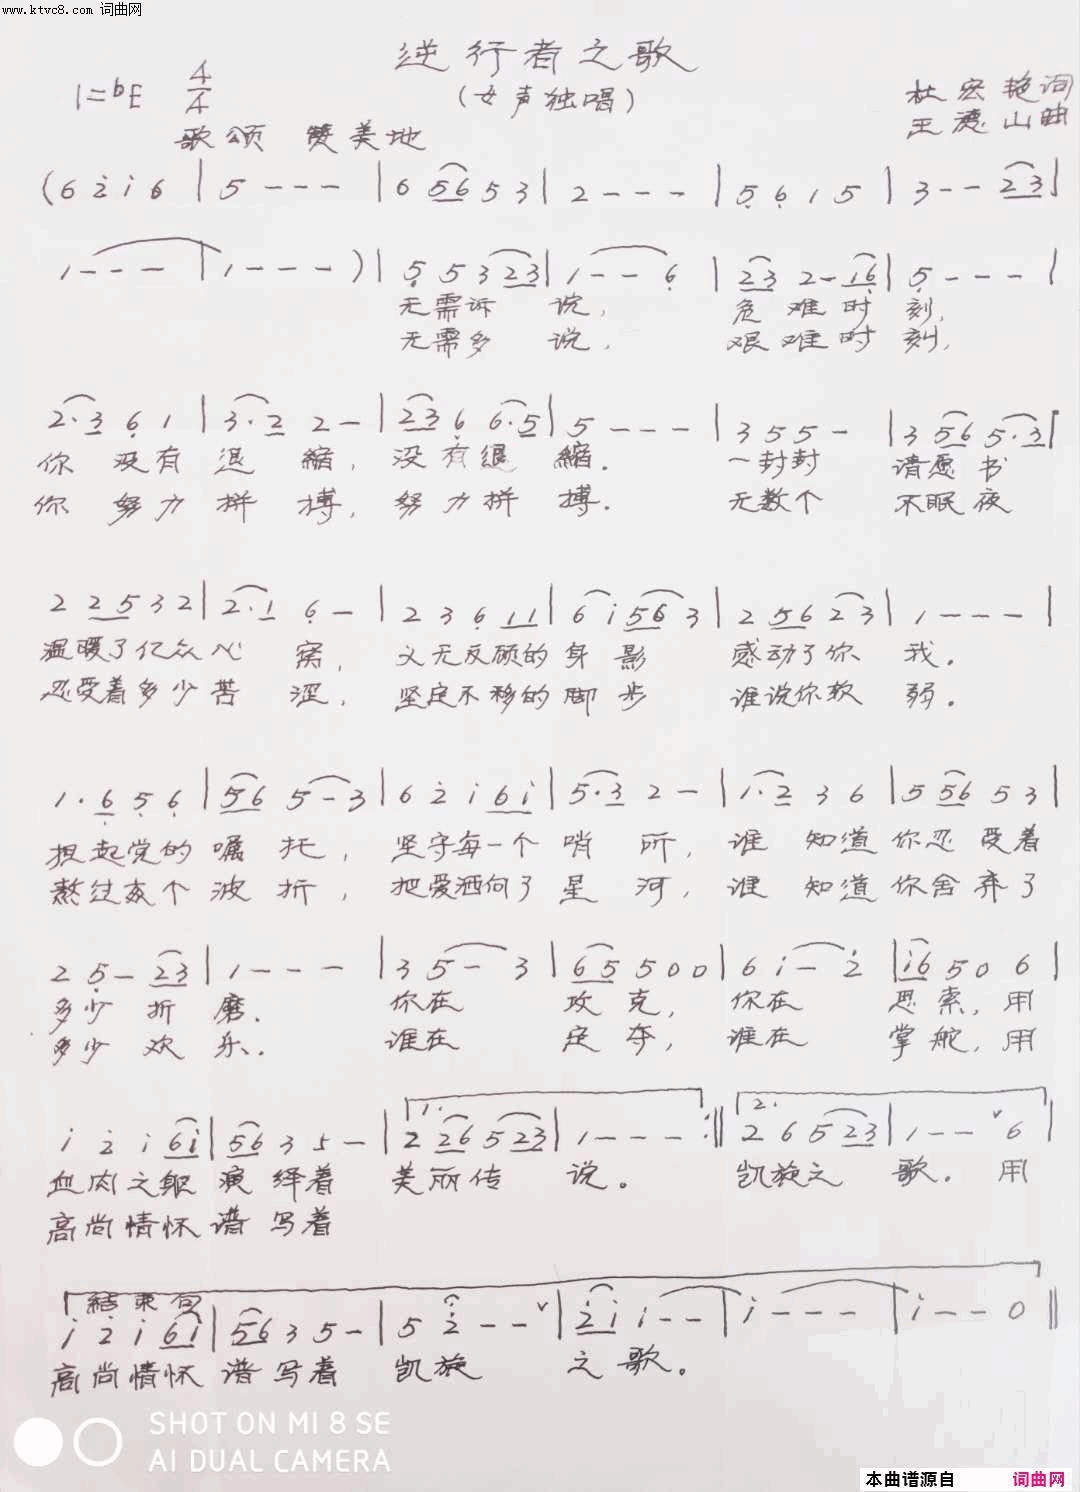 www.ktvc8.com 词曲网
逆行者之歌
(女声独唱)
1=bE 4/4
杜宏艳词
王德山曲
歌颂 赞美地
(6 2 i i 6 | 5 - - - | 6 56 5 3 | 2 - - - | 5 6 1 5 | 3 - - 23 |
1 - - - | 1 - - - ) | 5 5 3 23 | 1 - - 6 | 23 2 - 16 | 5 - - - |
无需诉 说, 危难时刻,
无需多 说, 艰难时刻,
2·3 6 1 | 3·2 2 - | 23 6 6·5 | 5 - - - | 3 5 5 - | 3 56 5·3 |
你 没有退 缩, 没有退 缩. 一封封 请愿书
你 努力拼 搏, 努力拼 搏. 无数个 不眠夜
2 25 3 2 | 2·1 6 - | 2 3 6 11 | 6 i 56 3 | 2 56 23 | 1 - - - |
温暖了亿众心 窝, 义无反顾的身影 感动了你 我.
忍受着多少苦 涩, 坚定不移的脚步 谁说你软 弱.
1·6 5 6 | 56 5 - 3 | 6 2 i 6i | 5·3 2 - | 1·2 3 6 | 5 56 5 3 |
担起党的嘱托, 坚守每一个哨所, 谁 知道你忍受着
熬过数个波折, 把爱洒向了星河, 谁 知道你舍弃了
2 5 - 23 | 1 - - - | 3 5 - 3 | 65 5 0 0 | 6 i - 2 | i6 5 0 6 |
多少 折 磨. 你在 攻克, 你在 思索, 用
多少 欢 乐. 谁在 定夺, 谁在 掌舵, 用
i 2 i 6i | 56 3 5 - | 1. 2 26 5 23 | 1 - - - :|| 2. 2 6 5 23 | 1 - - 6 |
血肉之躯 演绎着 美丽传 说。 凯旋之 歌. 用
高尚情怀 谱写着
结束句
i 2 i 6i | 56 3 5 - | 5 2 - - | 2i i - - | i - - - | i - - 0 ||
高尚情怀 谱写着 凯旋 之歌。
SHOT ON MI 8 SE
AI DUAL CAMERA
本曲谱源自 词曲网